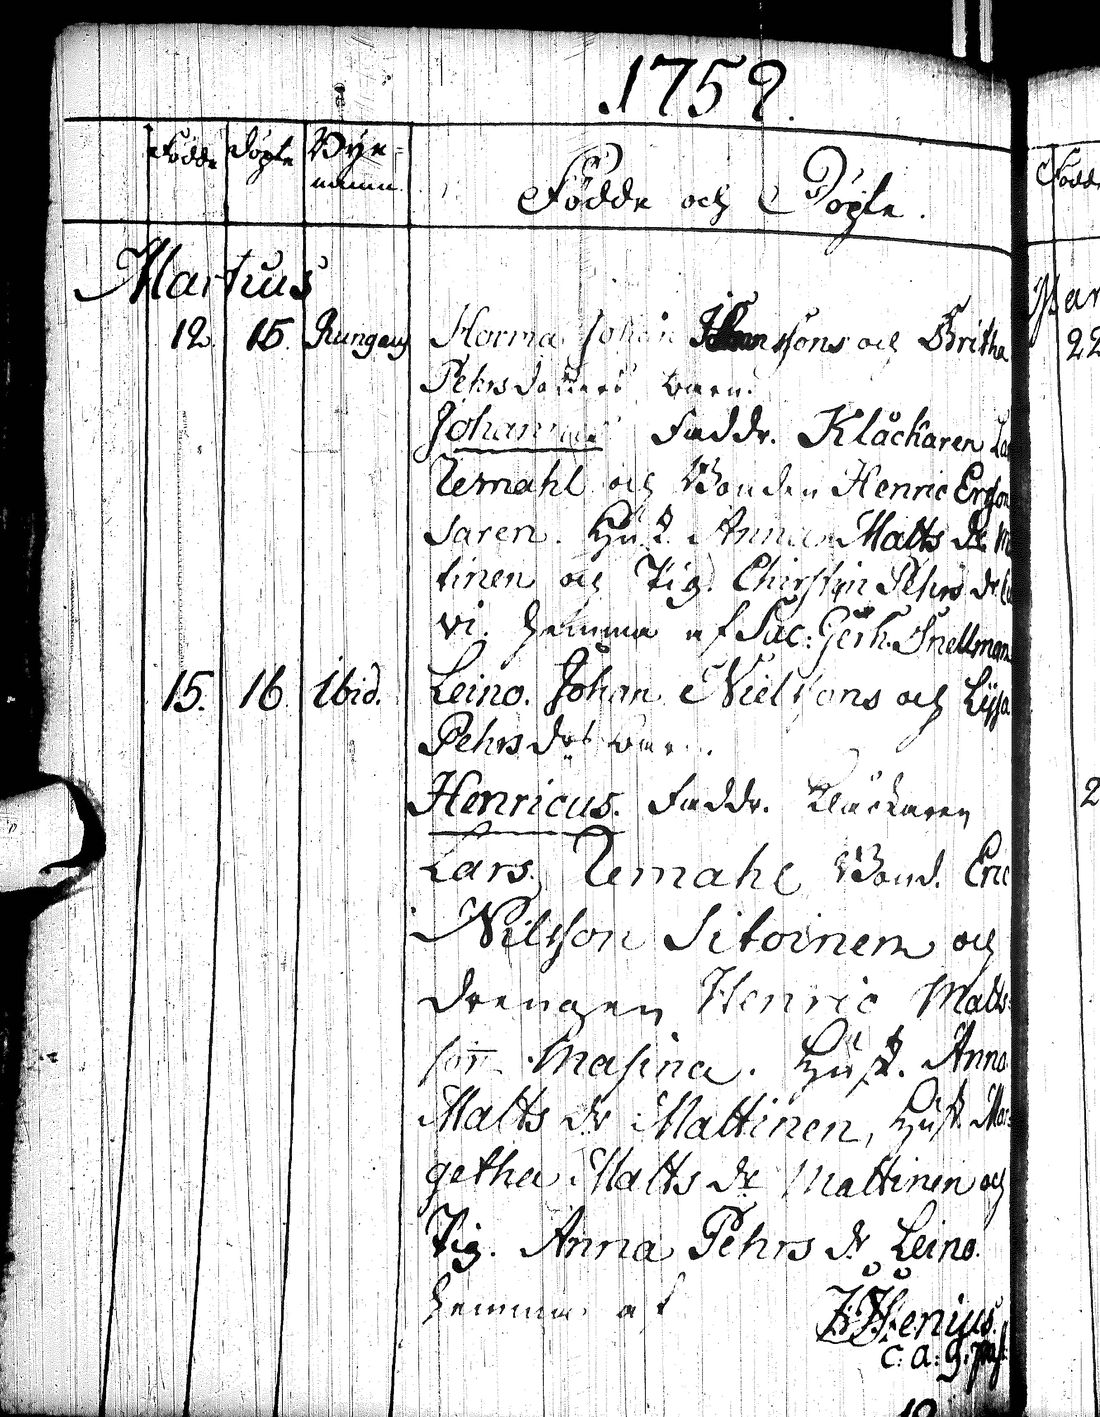 1759.
Födde Döpte Byenamn Födde och Döpte.
Martius
12. 15. Rungaus Horma Johan Hanssons och Britha
Pehrsdotters barn.
Johannes Faddr. Klåckaren
Uemahl och Bonden Henric Ersson
Saren. Hust. Anna Matts dr
tinen och Pig. Chirstin Pehrs dr
vi. hemma af Sac: Gerh. Snellman
15. 16. Ibid. Leino. Johan Nielssons och Lijsa
Pehrsdot barn.
Henricus. Faddr. Klåckaren
Lars Uemahl Bond. Eric
Nilsson Sitoinen och
Drengen Henric Matts:
son Masina. Hust. Anna
Matts dr Mattinen, Hust. Mar:
getha Matts dr Mattinen och
Pig. Anna Pehrs dr Leino.
hemma af
enius.
C: a: g:
Födde
Mar
22
2